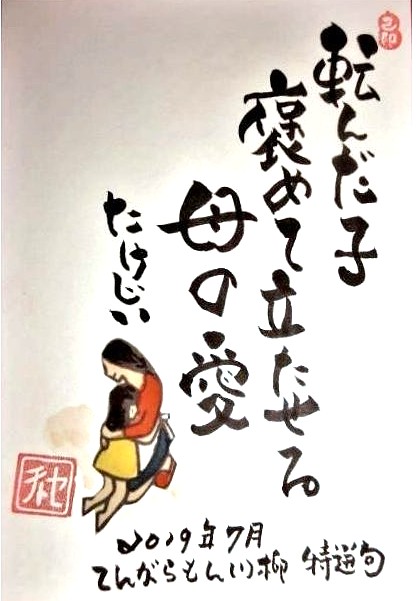 転んだ子
褒めて立たせる
母の愛
たけじい
2019年7月
てんがらもん川柳 特選句